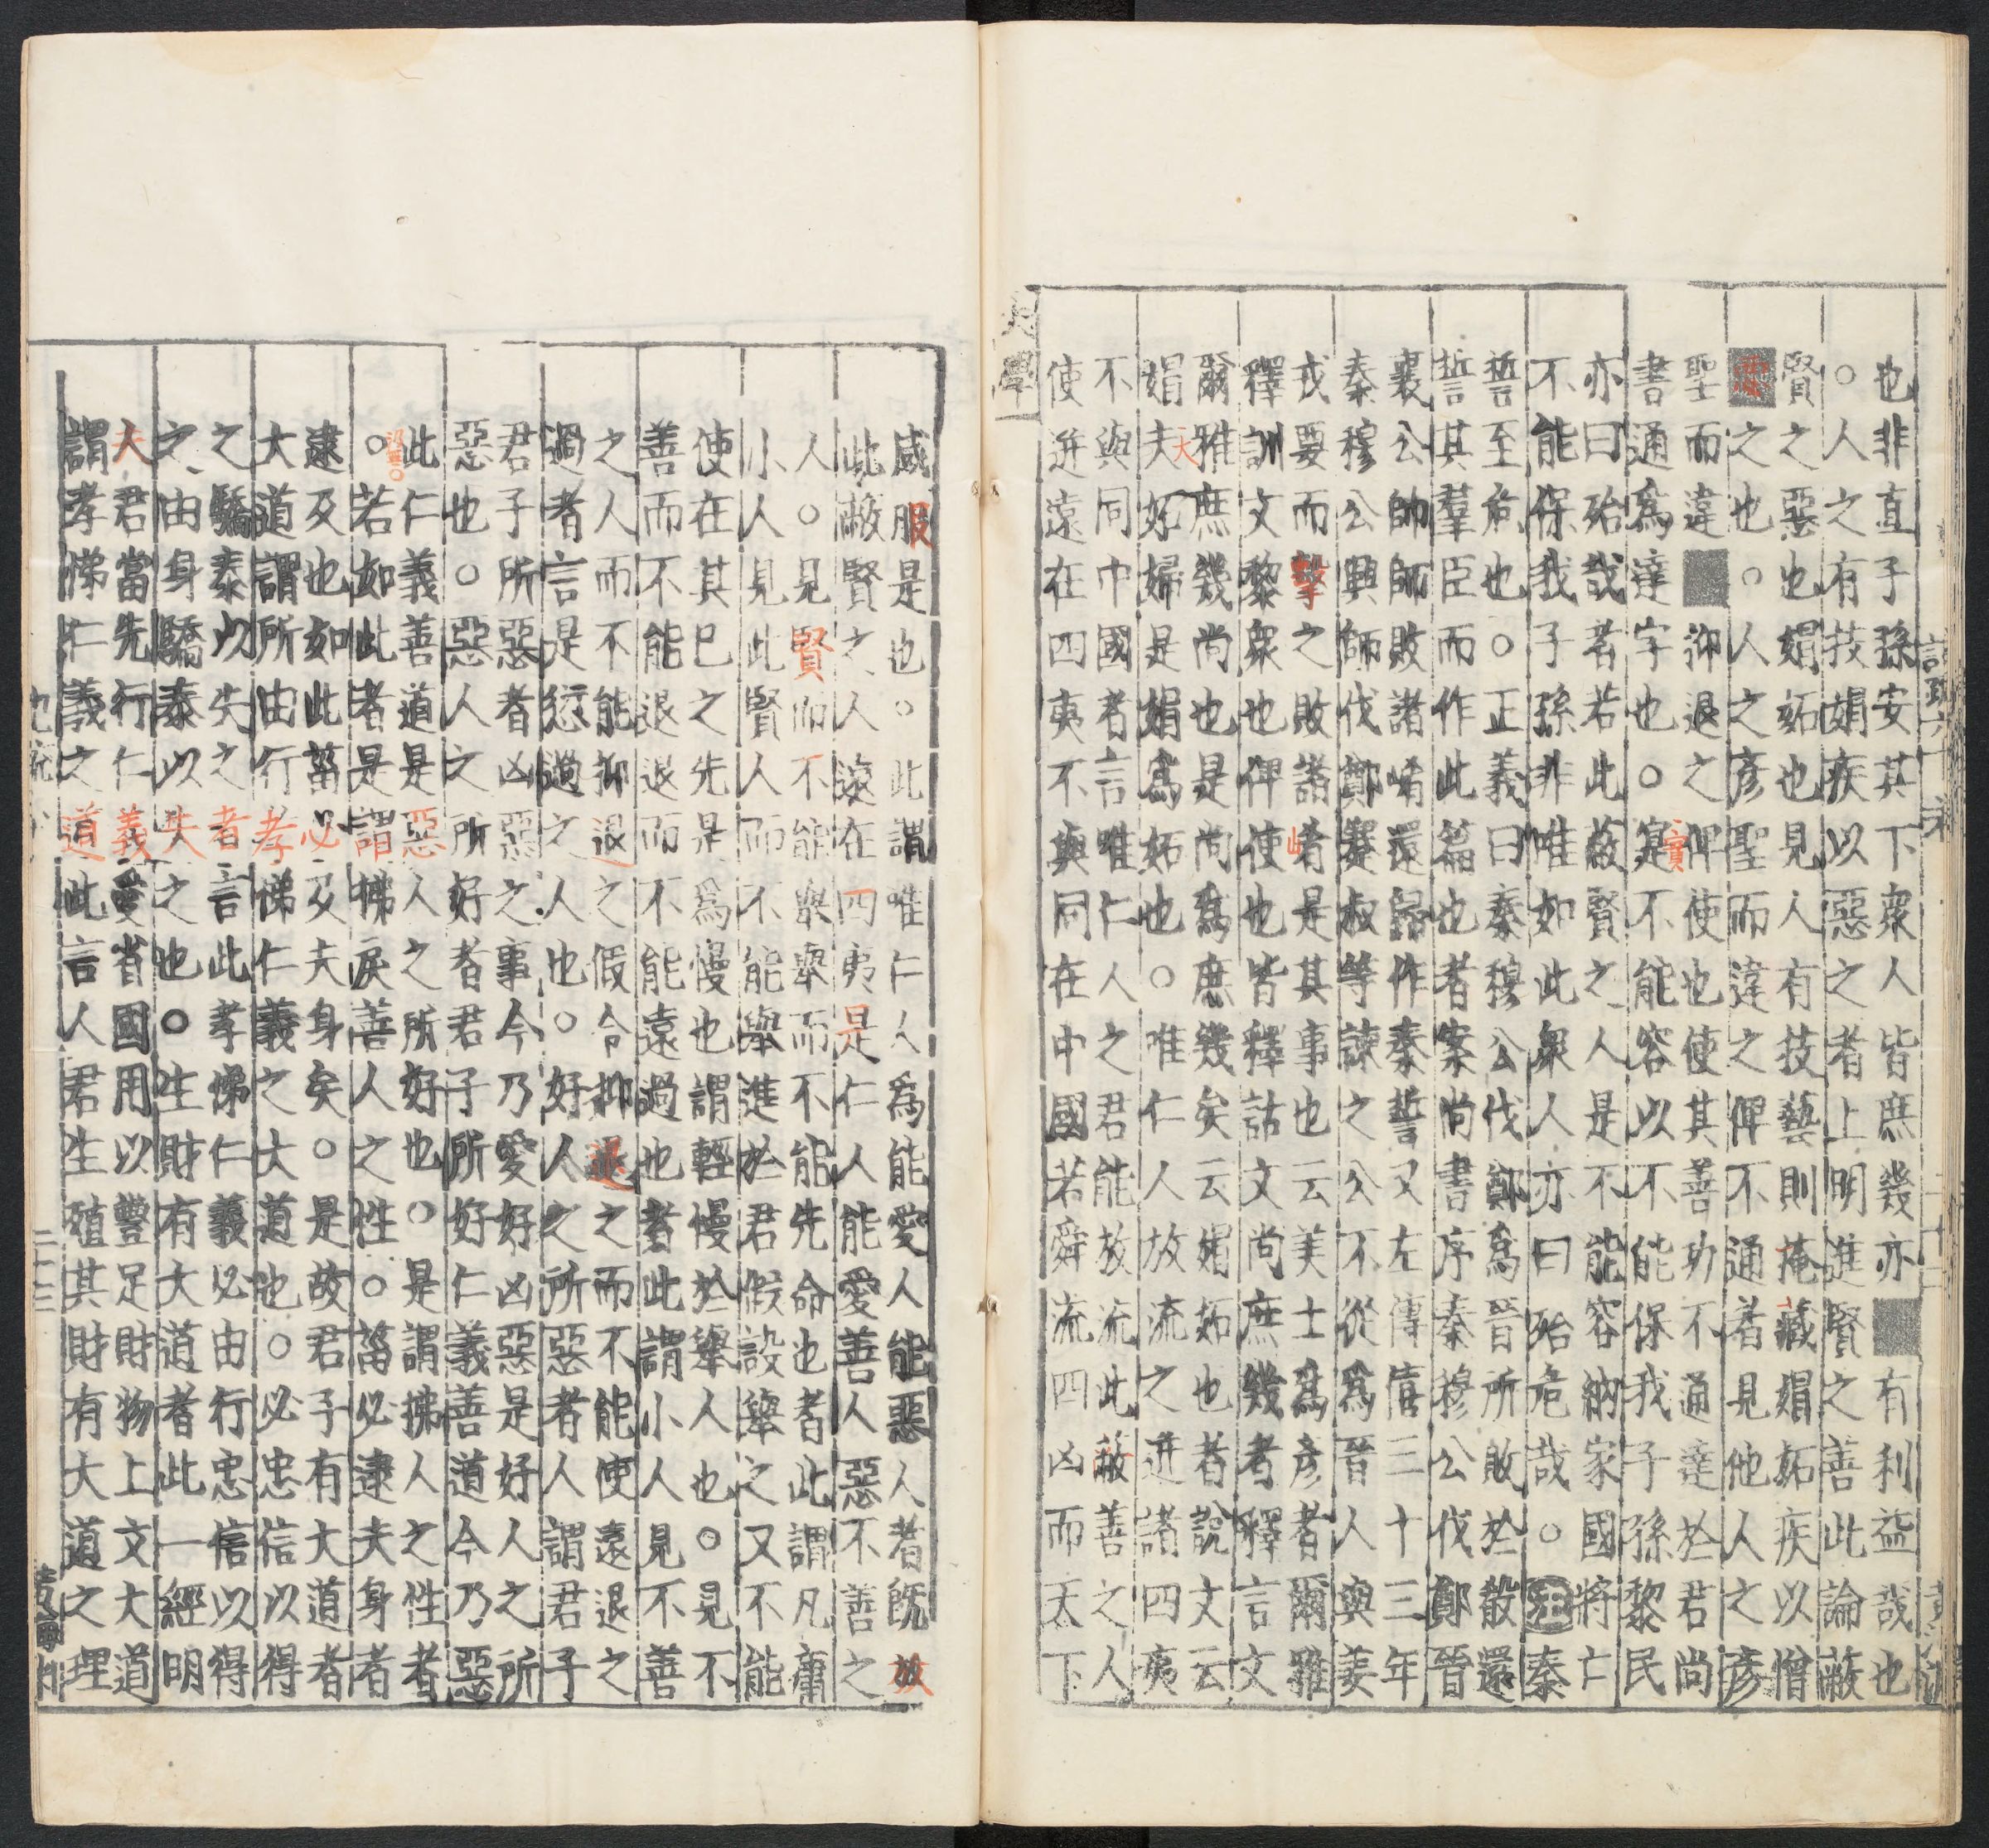 也非直子孫安其下衆人皆庶幾亦有利益哉也
○人之有技媢疾以惡之者上明進賢之善此論蔽
賢之惡也○媢妬也見人有技藝則掩藏媢妬疾以憎
惡之也○人之彦聖而違之俾不通者見他人之彦
聖而違抑退之俾使也使其善功不通達於君尚
書通爲達字也○寔不能容以不能保我子孫黎民
實
亦曰殆哉者若此蔽賢之人是不能容納家國將亡
不能保我子孫非唯如此衆人亦曰殆危哉○注秦
誓至危也○正義曰秦穆公伐鄭爲晉所敗於殽還
誓其羣臣而作此篇也者案尚書序秦穆公伐鄭晉
襄公帥師敗諸崤還歸作秦誓又左傳僖三十三年
秦穆公興師伐鄭蹇叔等諫之公不從爲晉人與姜
戎要而擊之敗諸崤是其事也云美士爲彦者爾雅
釋訓文黎衆也俾使也皆釋詁文尚庶幾者釋言文
爾雅庶幾尚也是尚爲庶幾矣云媢妬也者說文云
媢夫妬婦是媢爲妬也○唯仁人放流之迸諸四夷
不與同中國者言唯仁人之君能放流此蔽善之人
使迸遠在四夷不與同在中國若舜流四凶而天下
大學
咸服是也○此謂唯仁人爲能愛人能惡人者既放
此蔽賢之人遠在四夷是仁人能愛善人惡不善之
人○見賢而不能舉舉而不能先命也者此謂凡庸
小人見此賢人而不能舉進於君假設舉之又不能
使在其已之先是爲慢也謂輕慢於舉人也○見不
善而不能退退而不能遠過也者此謂小人見不善
之人而不能抑退之假令抑退之而不能使遠退之
過者言是愆過之人也○好人之所惡者人謂君子
君子所惡者凶惡之事今乃愛好凶惡是好人之所
惡也○惡人之所好者君子所好仁義善道今乃惡
此仁義善道是惡人之所好也○是謂拂人之性者
○若如此者是謂拂戾善人之性○菑必逮夫身者
逮及也如此菑必及夫身矣○是故君子有大道者
大道謂所由行孝悌仁義之大道也○必忠信以得
之驕泰以失之者言此孝悌仁義必由行忠信以得
之由身驕泰以失之也○生財有大道者此一經明
人君當先行仁義愛省國用以豐足財物上文大道
謂孝悌仁義之道此言人君生殖其財有大道之理
二十三